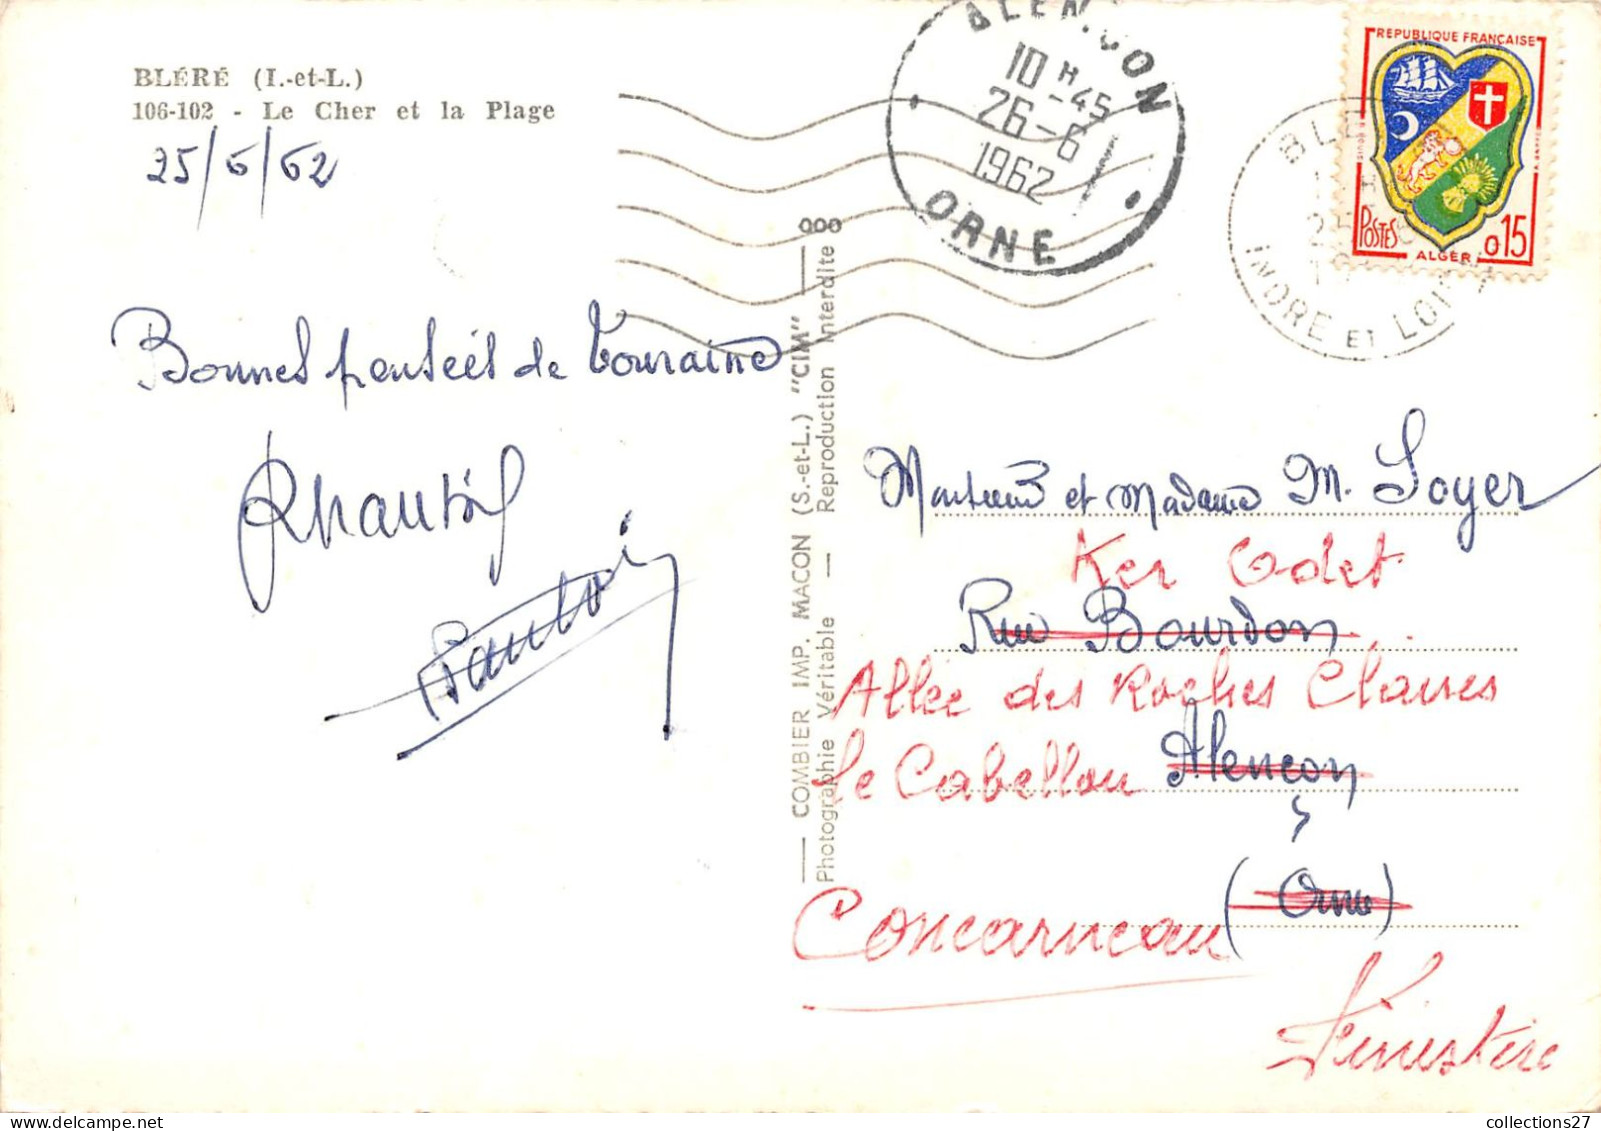 BLÉRÉ (I.-et-L.)
106-102 - Le Cher et la Plage
25/6/62
Bonnes pensées de Touraine
ALENCON
10 H -45
26-6
1962
ORNE
BLE
INDRE ET LOI
REPUBLIQUE FRANÇAISE
POSTES
ALGER
0,15
COMBIER IMP. MACON (S.-et-L.) "CIM"
Photographie Véritable — Reproduction Interdite
Monsieur et Madame M. Loyer
Ker Odet
Rue Bourdon
Allée des Roches Claires
Le Cabellou Alençon
(Orne)
Concarneau
Finistère
collections27